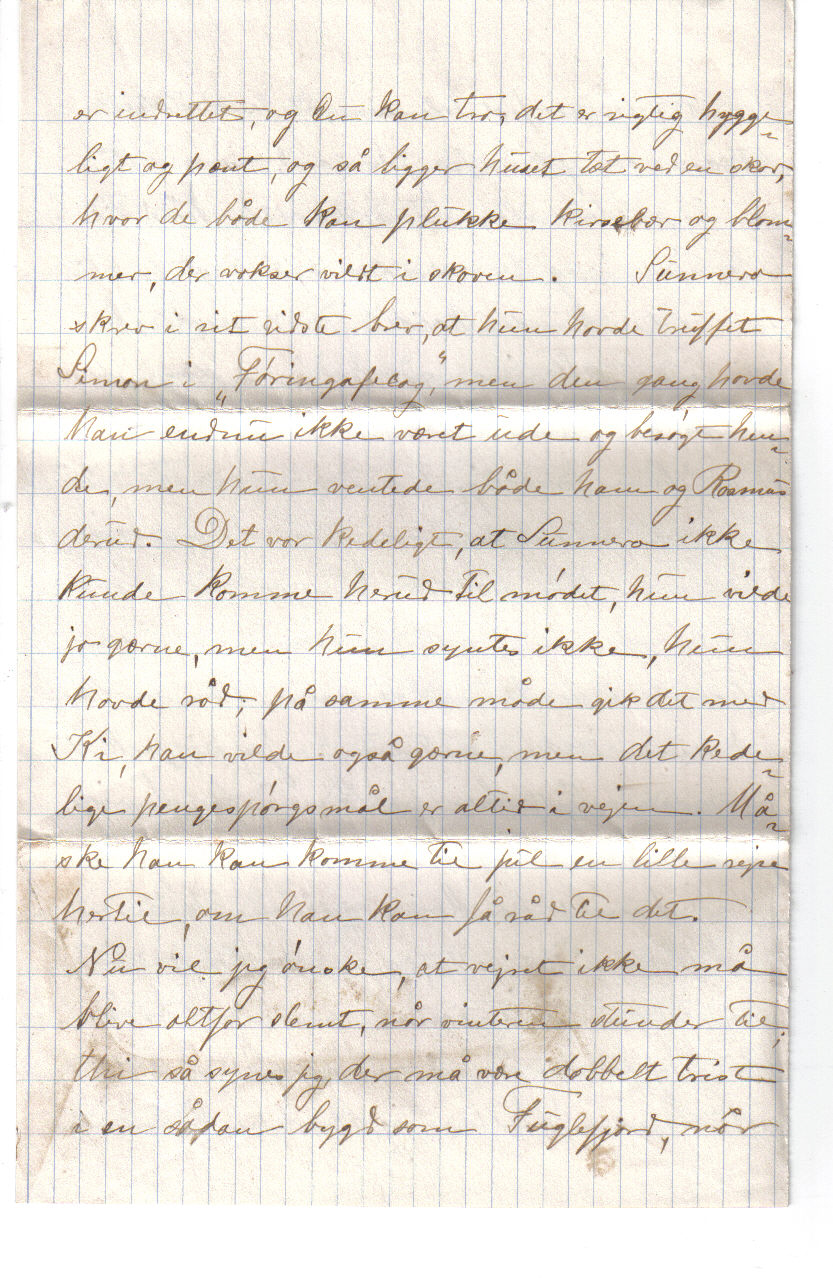 er indrettet, og Du kan tro, det er rigtig hygge-
ligt og pænt, og så ligger huset tæt ved en skov,
hvor de både kan plukke kirsebær og blom-
mer, der vokser vildt i skoven. Sunneva
skrev i sit sidste brev, at hun havde truffet
Simon i "Føringafelag", men den gang havde
han endnu ikke været ude og besøgt hen-
de, men hun ventede både ham og Rasmus
derud. Det var kedeligt, at Sunneva ikke
kunde komme herud til mødet, hun vilde
jo gærne, men hun syntes ikke, hun
havde råd; på samme måde gik det med
Ki, han vilde også gærne, men det kede-
lige pengespørgsmål er altid i vejen. Må-
ske han kan komme til jul en lille rejse
hertil, om han kan få råd til det.
Nu vil jeg ønske, at vejret ikke må
blive altfor slemt, når vinteren stunder til;
thi så synes jeg, der må være dobbelt trist
i en sådan bygd som Fuglefjord, når